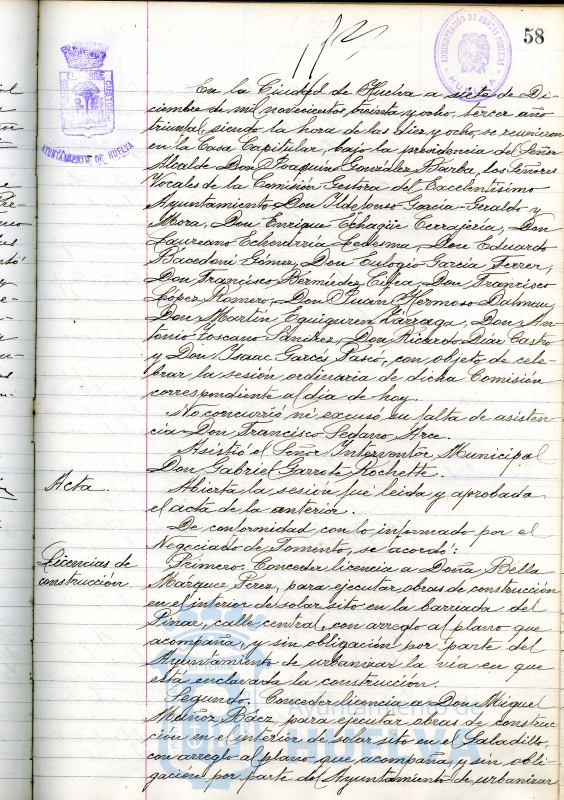 58
ADMINISTRACIÓN DE RENTAS PÚBLICAS
HUELVA
AYUNTAMIENTO DE HUELVA
En la Ciudad de Huelva a siete de Di-
ciembre de mil novecientos treinta y ocho, tercer año
triunfal, siendo la hora de las diez y ocho, se reunieron
en la Casa Capitular, bajo la presidencia del Señor
Alcalde Don Joaquín González Barba, los Señores
Vocales de la Comisión Gestora del Excelentísimo
Ayuntamiento Don Ildefonso García-Geraldo y
Mora, Don Enrique Echagüe Cerrajería, Don
Laureano Echevarría Ledesma, Don Eduardo
Racedoni Gómez, Don Eulogio García Ferrer,
Don Francisco Bermúdez Cilea, Don Francisco
López Romero, Don Juan Hermoso Dalmau,
Don Martín Eguiguren Lárraga, Don An-
tonio Toscano Sánchez, Don Ricardo Díaz Castro
y Don Isaac Garcés Pascó, con objeto de cele-
brar la sesión ordinaria de dicha Comisión
correspondiente al día de hoy.
No concurrió ni excusó su falta de asisten-
cia Don Francisco Sedano Arce.
Asistió el Señor Interventor Municipal
Don Gabriel Garrote Rochette.
Acta.
Abierta la sesión fué leída y aprobada
el acta de la anterior.
De conformidad con lo informado por el
Negociado de Fomento, se acordó:
Licencias de
construcción
Primero. Conceder licencia a Doña Bella
Márquez Pérez, para ejecutar obras de construcción
en el interior de solar sito en la barriada del
Pinar, calle central, con arreglo al plano que
acompaña, y sin obligación por parte del
Ayuntamiento de urbanizar la vía en que
está enclavada la construcción.
Segundo. Conceder licencia a Don Miguel
Muñoz Báez para ejecutar obras de construc-
ción en el interior de solar sito en el Saladillo,
con arreglo al plano que acompaña, y sin obli-
gación por parte del Ayuntamiento de urbanizar
Ayuntamiento de
HUELVA